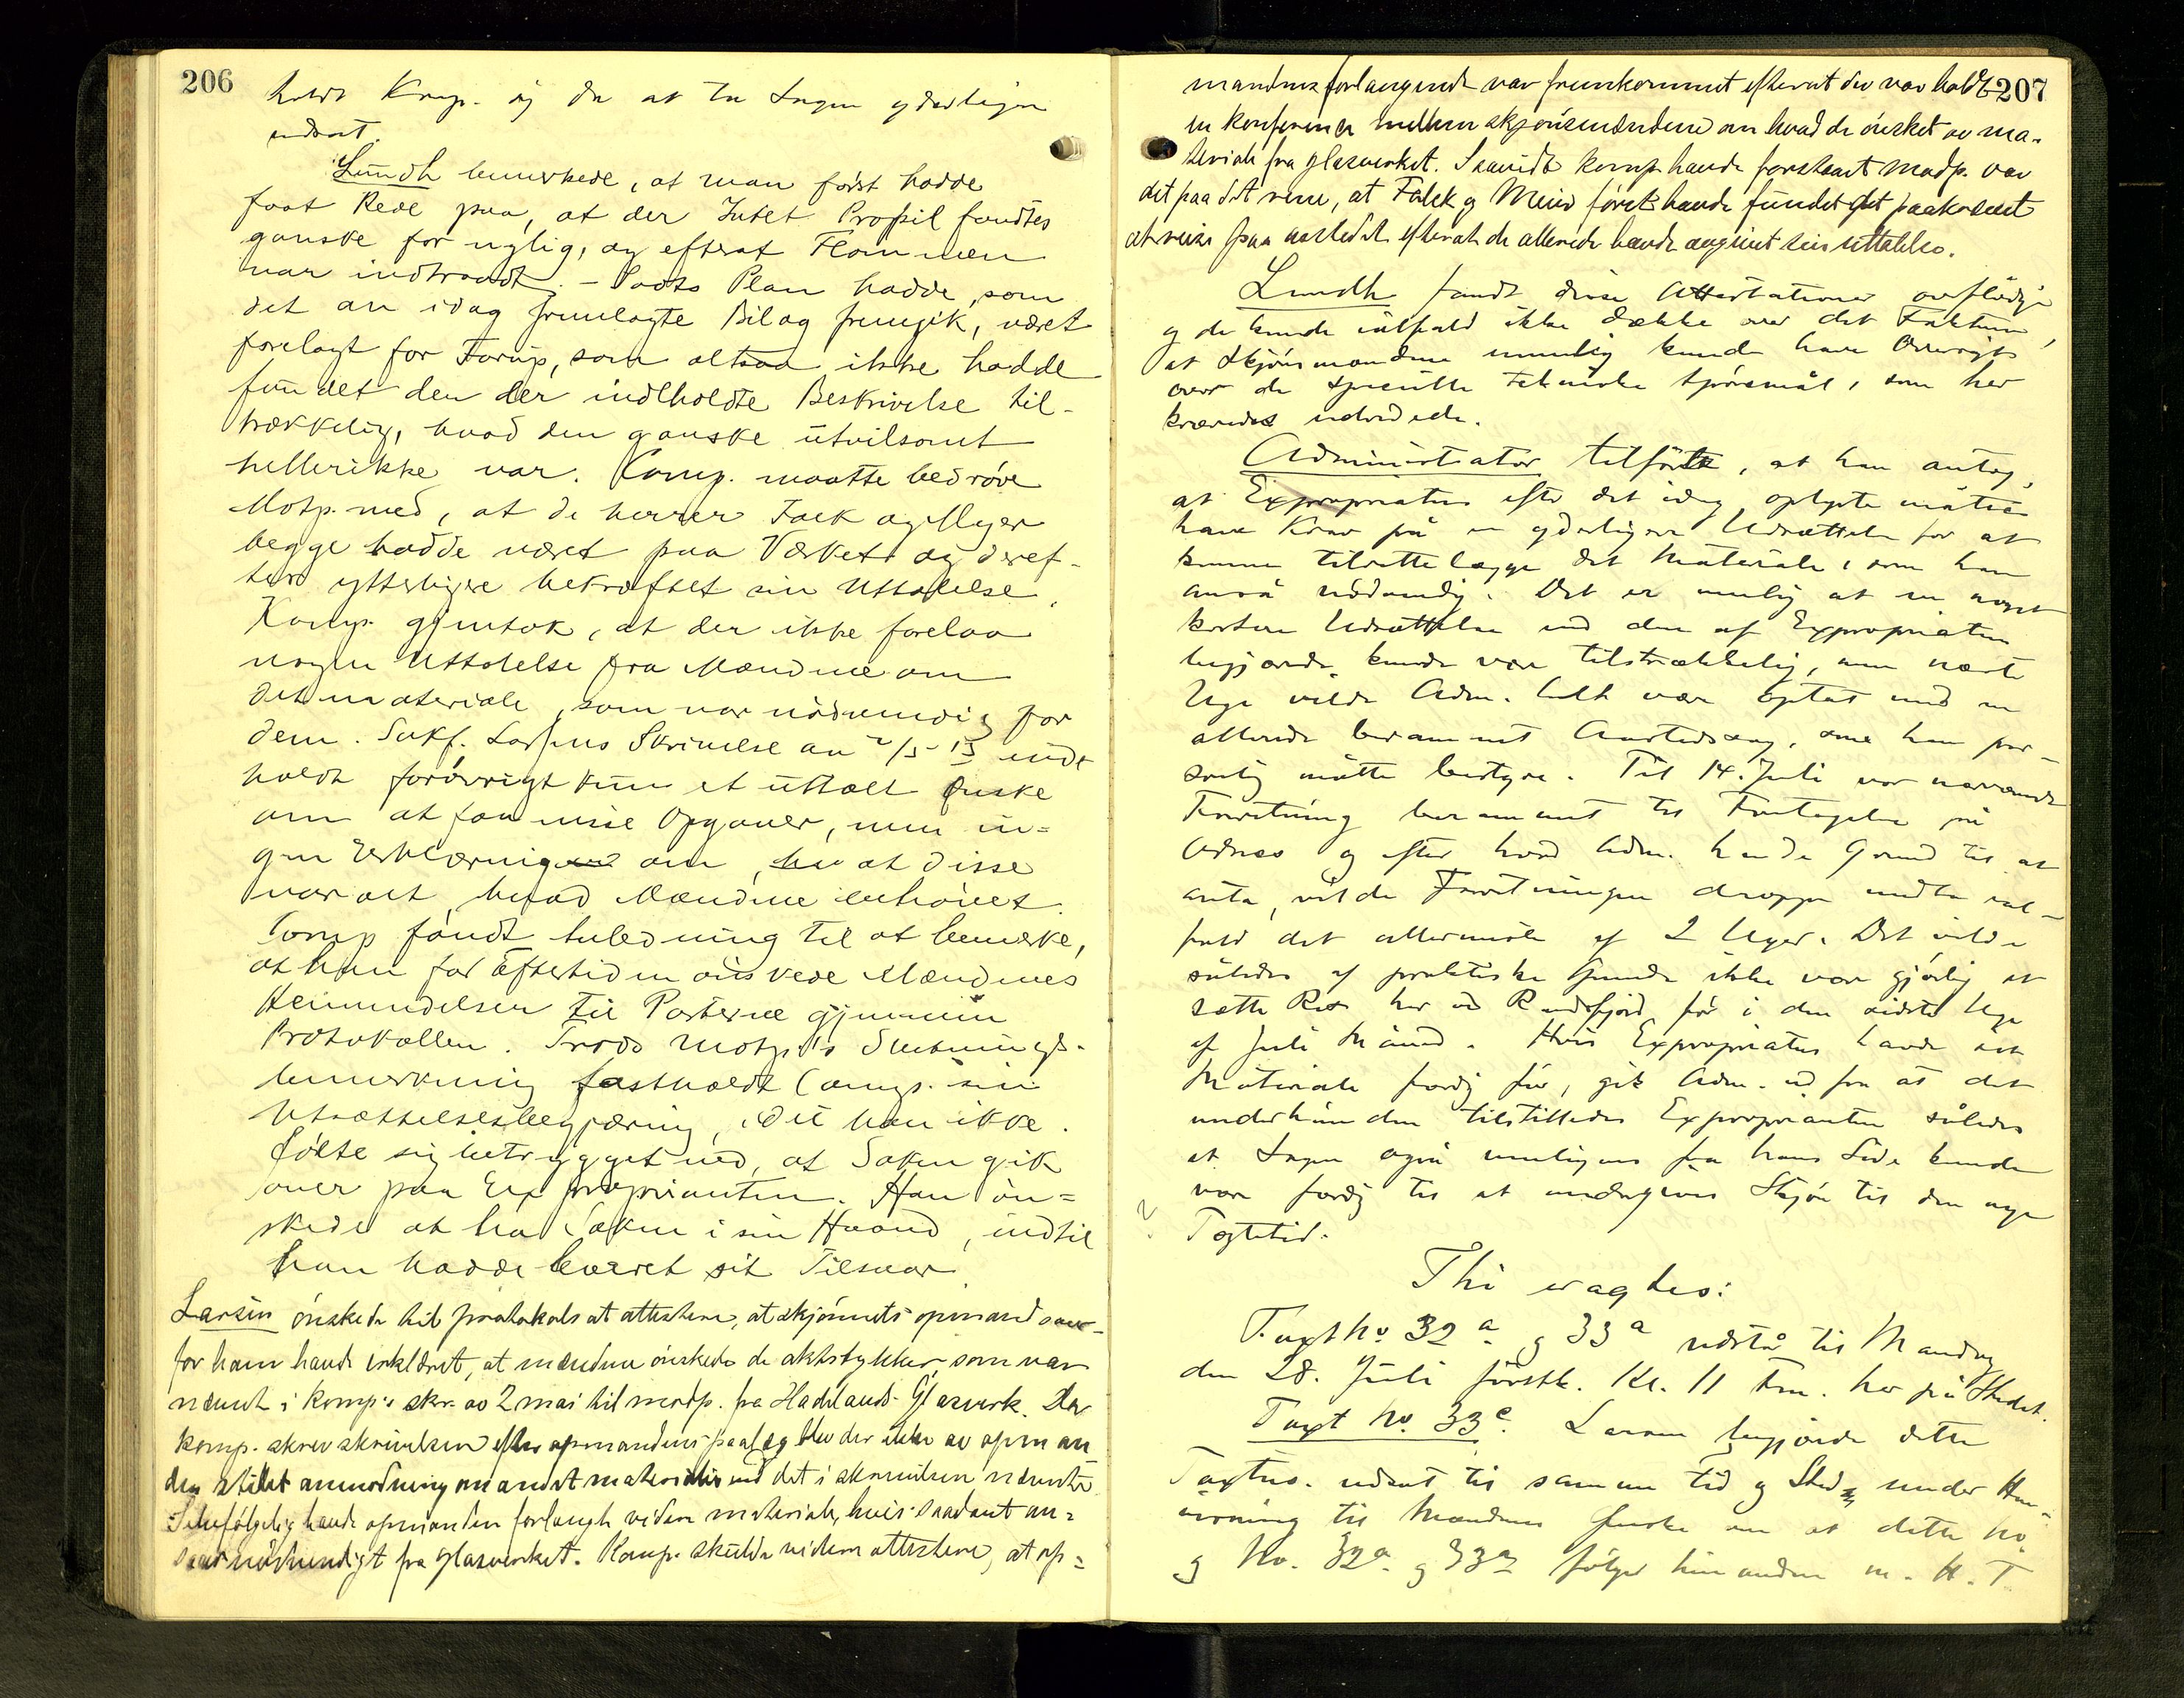 206
holdt Komp. sig da at ta Sagen yderligere
udsat.
Lundh bemerkede, at man först hadde
faat Rede paa, at der Intet Profil fandtes
ganske for nylig, og efterat Flommen
var indtraadt. - Saxes Plan hadde, som
det av idag fremlagte Bilag fremgik, været
forelagt for Torup, som altsaa ikke hadde
fundet den der indholdte Beskrivelse til-
trækkelig, hvad den ganske utvilsomt
hellerikke var. Comp. maatte bedrøve
Motp. med, at de herrer Falck og Meyer
begge hadde været paa Verket og deref-
ter ytterligere bekræftet sin Uttalelse.
Komp. gjentok, at der ikke forelaa
nogen Uttalelse fra Mændene om
det materiale, som var nödvendig for
dem. Sakf. Larsens Skrivelse av 2/5-13 inde
holdt forövrigt kun et uttalt Önske
om at faa visse Opgaver, men in=
gen Erklæring om, at disse
var alt, hvad Mændene behövet.
Comp fandt Anledning til at bemerke,
at han for Eftertiden önskede Mændenes
Henvendelser til Parterne gjennem
Protokollen. Trods Motp's Slutnings-
bemerkning fastholdt Comp. sin
Utsættelsesbegjæring, idet han ikke
følte sig betrygget ved, at Saken gik
over paa Exproprianten. Han ön=
skede at ha Saken i sin Haand, indtil
han hadde leveret sit Tilsvar.
Larsen önskede til protokols at attestere, at skjönnets opmand over-
for ham havde erklæret, at mændene önskede de aktstykker som var
nævnt i komp's skr. av 2 mai til modp. fra Hadelands Glasverk. Da
komp. skrev skrivelsen efter opmandens paalæg blev der ikke av opman
den stillet anmodning om andet materiale end det i skrivelsen nævnte
Selvfølgelig havde opmanden forlangt videre materiale, hvis saadant an=
saaes nødvendigt fra glasverket. Komp. skulde videre attestere, at op=
207
mandens forlangende var fremkommet efterat der var holdt
en konference mellem skjönsmændene om hvad de önsket av ma-
teriale fra glasverket. Saavidt komp. havde forstaaet modp. var
det paa det rene, at Falck og Meier först havde fundet det paakrævet
at reise paa aastedet efterat de allerede havde avgivet sin uttalelse.
Lundh fandt disse Attestationer overflödige
og de kunde ialfald ikke dække over det Faktum,
at Skjönsmændene umulig kunde have Oversigt
over de specielle tekniske Spörsmål, som her
krævedes utredede.
Administrator tilförte, at han antog,
at Expropriatus efter det idag oplyste måtte
have Krav på en yderligere Udsættelse for at
kunne tilrettelægge det Materiale, som han
anså nödvendig. Det er mulig at en noget
kortere Udsættelse end den af Expropriatus
begjærede kunde være tilstrækkelig, men næste
Uge vilde Adm. helt være optat med en
allerede berammet Aastedssag, som han per-
sonlig måtte bestyre. Til 14. Juli var nærværende
Forretning berammet til Foretagelse på
Odnes og efter hvad Adm. havde Grund til at
anta, vilde Forretningen deroppe medta ial-
fald det allermeste af 2 Uger. Det vilde
således af praktiske Grunde ikke være gjörlig at
sætte Ret her ved Randsfjord för i den sidste Uge
af Juli Måned. Hvis Expropriatus havde sit
Materiale færdig för, gik Adm. ud fra at det
underhånden tilstilledes Exproprianten således
at Sagen også muligens fra hans Side kunde
være færdig til at undergives Skjön til den nye
Tægtetid.
Thi eragtes:
Taxt No 32 a og 33 a udstå til Mandag
den 28. Juli förstk. Kl. 11 Fm. her på Stedet.
Taxt No. 33 c. Larsen begjærde dette
Taxtno. udsat til samme Tid og Sted under Hen-
visning til Mændenes Önske om at dette No
og No. 32a og 33a fölger hinanden m. H. T.